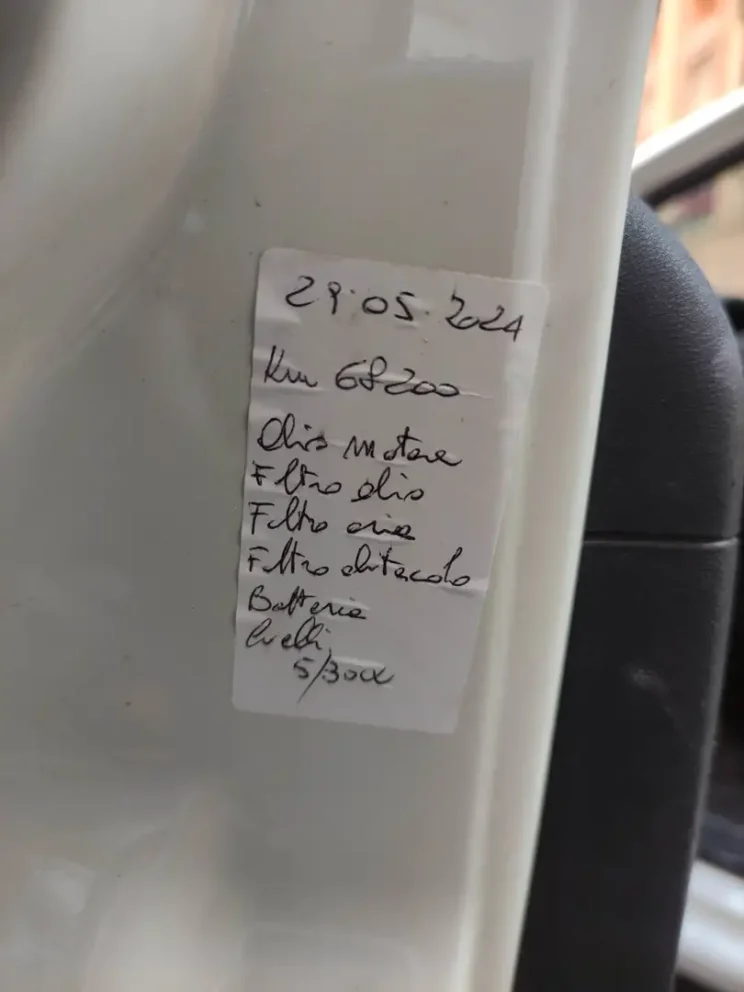 29.05.2024
Km 68200
Olio motore
Filtro olio
Filtro aria
Filtro abitacolo
Batteria
Livelli
5/30